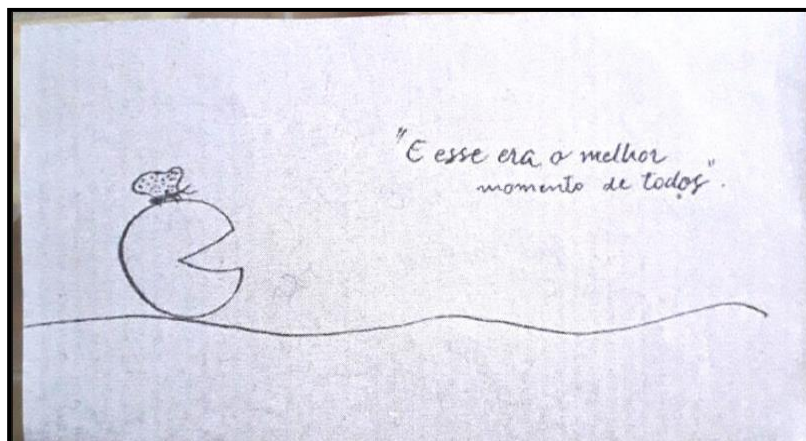 "E esse era o melhor
momento de todos".